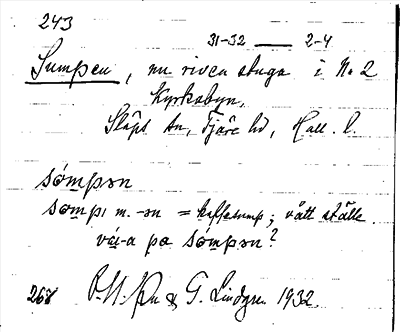 243
31-32 — 2-4
Sumpen, nu riven stuga i No 2
Kyrkobyn,
Släps sn, Fjäre hd, Hall. l.
sómpən
sompı m. -ən = kaffesump; vått ställe
vá-a pa sómpən?
268 G. Lindgren 1932.